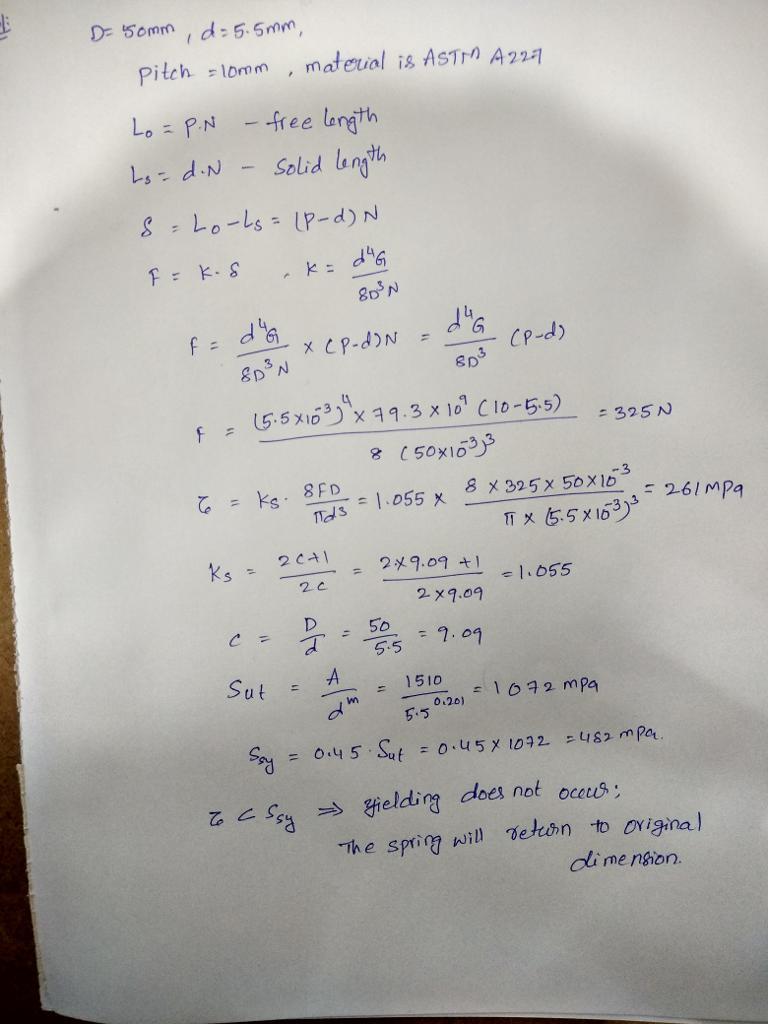 D= 50mm , d=5.5mm,
Pitch =10mm , material is ASTM A227
L₀ = P.N - free length
Ls = d.N - Solid length
δ = L₀-Ls = (P-d) N
F = K.δ , K = d⁴G / 8D³N
F = d⁴G / 8D³N x (P-d)N = d⁴G / 8D³ (P-d)
F = (5.5x10⁻³)⁴ x 79.3 x 10⁹ (10-5.5) / 8 (50x10⁻³)³ = 325N
τ = Ks. 8FD / πd³ = 1.055 x 8 x 325 x 50x10⁻³ / π x (5.5x10⁻³)³ = 261 mpa
Ks = 2C+1 / 2C = 2x9.09 +1 / 2x9.09 = 1.055
C = D / d = 50 / 5.5 = 9.09
Sut = A / dᵐ = 1510 / 5.5^0.201 = 1072 mpa
Ssy = 0.45.Sut = 0.45 x 1072 =482 mpa.
τ < Ssy ⇒ yielding does not occur;
The spring will return to original
dimension.